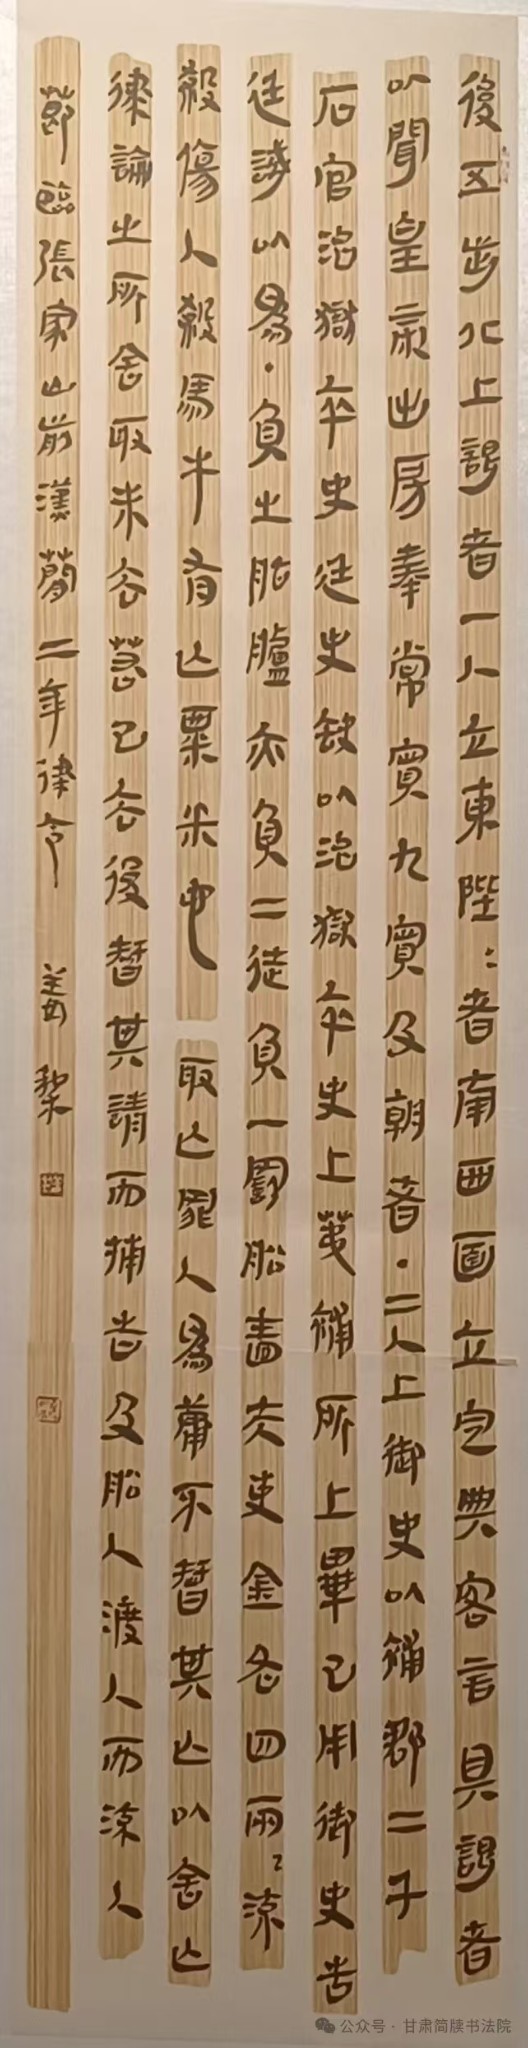 後五步北上謁者一人立東陛〻者南西面立定典客言具謁者
以聞皇帝出房奉常賓九賓及朝者·二人上御史以補郡二千
石官治獄卒史廷史缺以治獄卒史上苐補所上畢已用御史告
廷以為·負土胎臚亦負二徒負一罰船嗇夫吏金各四兩〻流
殺傷人殺馬牛有亡粟米也 取亡罪人為庸不智其亡以舍亡
律論之所舍取未去若已去後智其請而捕告及船人渡人而流人
節臨張家山前漢簡二年律令
公众号·甘肃简牍书法院